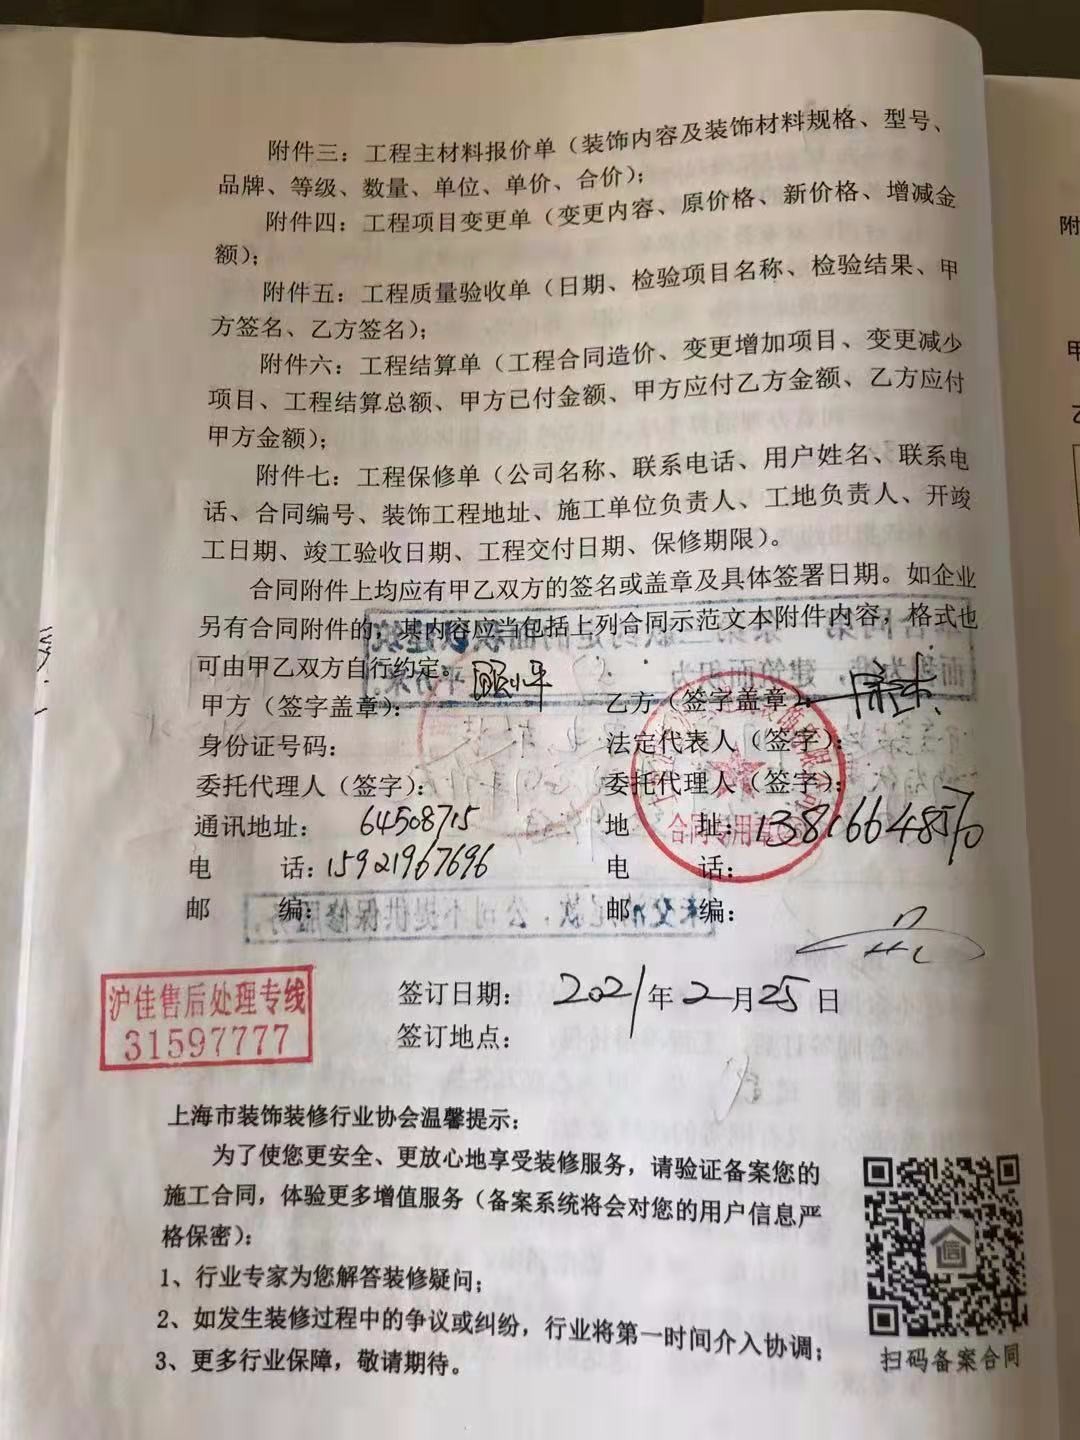 附件三：工程主材料报价单（装饰内容及装饰材料规格、型号、
品牌、等级、数量、单位、单价、合价）；
附件四：工程项目变更单（变更内容、原价格、新价格、增减金
额）；
附件五：工程质量验收单（日期、检验项目名称、检验结果、甲
方签名、乙方签名）；
附件六：工程结算单（工程合同造价、变更增加项目、变更减少
项目、工程结算总额、甲方已付金额、甲方应付乙方金额、乙方应付
甲方金额）；
附件七：工程保修单（公司名称、联系电话、用户姓名、联系电
话、合同编号、装饰工程地址、施工单位负责人、工地负责人、开竣
工日期、竣工验收日期、工程交付日期、保修期限）。
合同附件上均应有甲乙双方的签名或盖章及具体签署日期。如企业
另有合同附件的，其内容应当包括上列合同示范文本附件内容，格式也
可由甲乙双方自行约定。
甲方（签字盖章）： 乙方（签字盖章）：
身份证号码： 法定代表人（签字）：
委托代理人（签字）： 委托代理人（签字）：
通讯地址： 64508715 地 址：13816648570
电 话：15921967696 电 话：
邮 编： 邮 编：
合同专用章
沪佳售后处理专线
31597777
签订日期： 2021年2月25日
签订地点：
上海市装饰装修行业协会温馨提示：
为了使您更安全、更放心地享受装修服务，请验证备案您的
施工合同，体验更多增值服务（备案系统将会对您的用户信息严
格保密）：
1、行业专家为您解答装修疑问；
2、如发生装修过程中的争议或纠纷，行业将第一时间介入协调；
3、更多行业保障，敬请期待。
信
扫码备案合同
附
甲